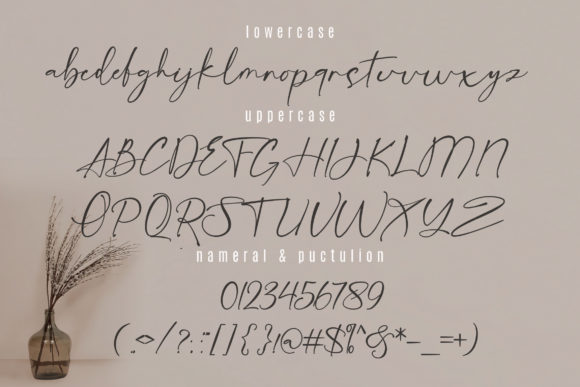 lowercase
abcdefghijklmnopqrstuvwxyz
uppercase
ABCDEFGHIJKLMN
OPQRSTUVWXYZ
nameral & puctulion
0123456789
( .,<>/?:;"[]{}!@#$%^&*-_=+)